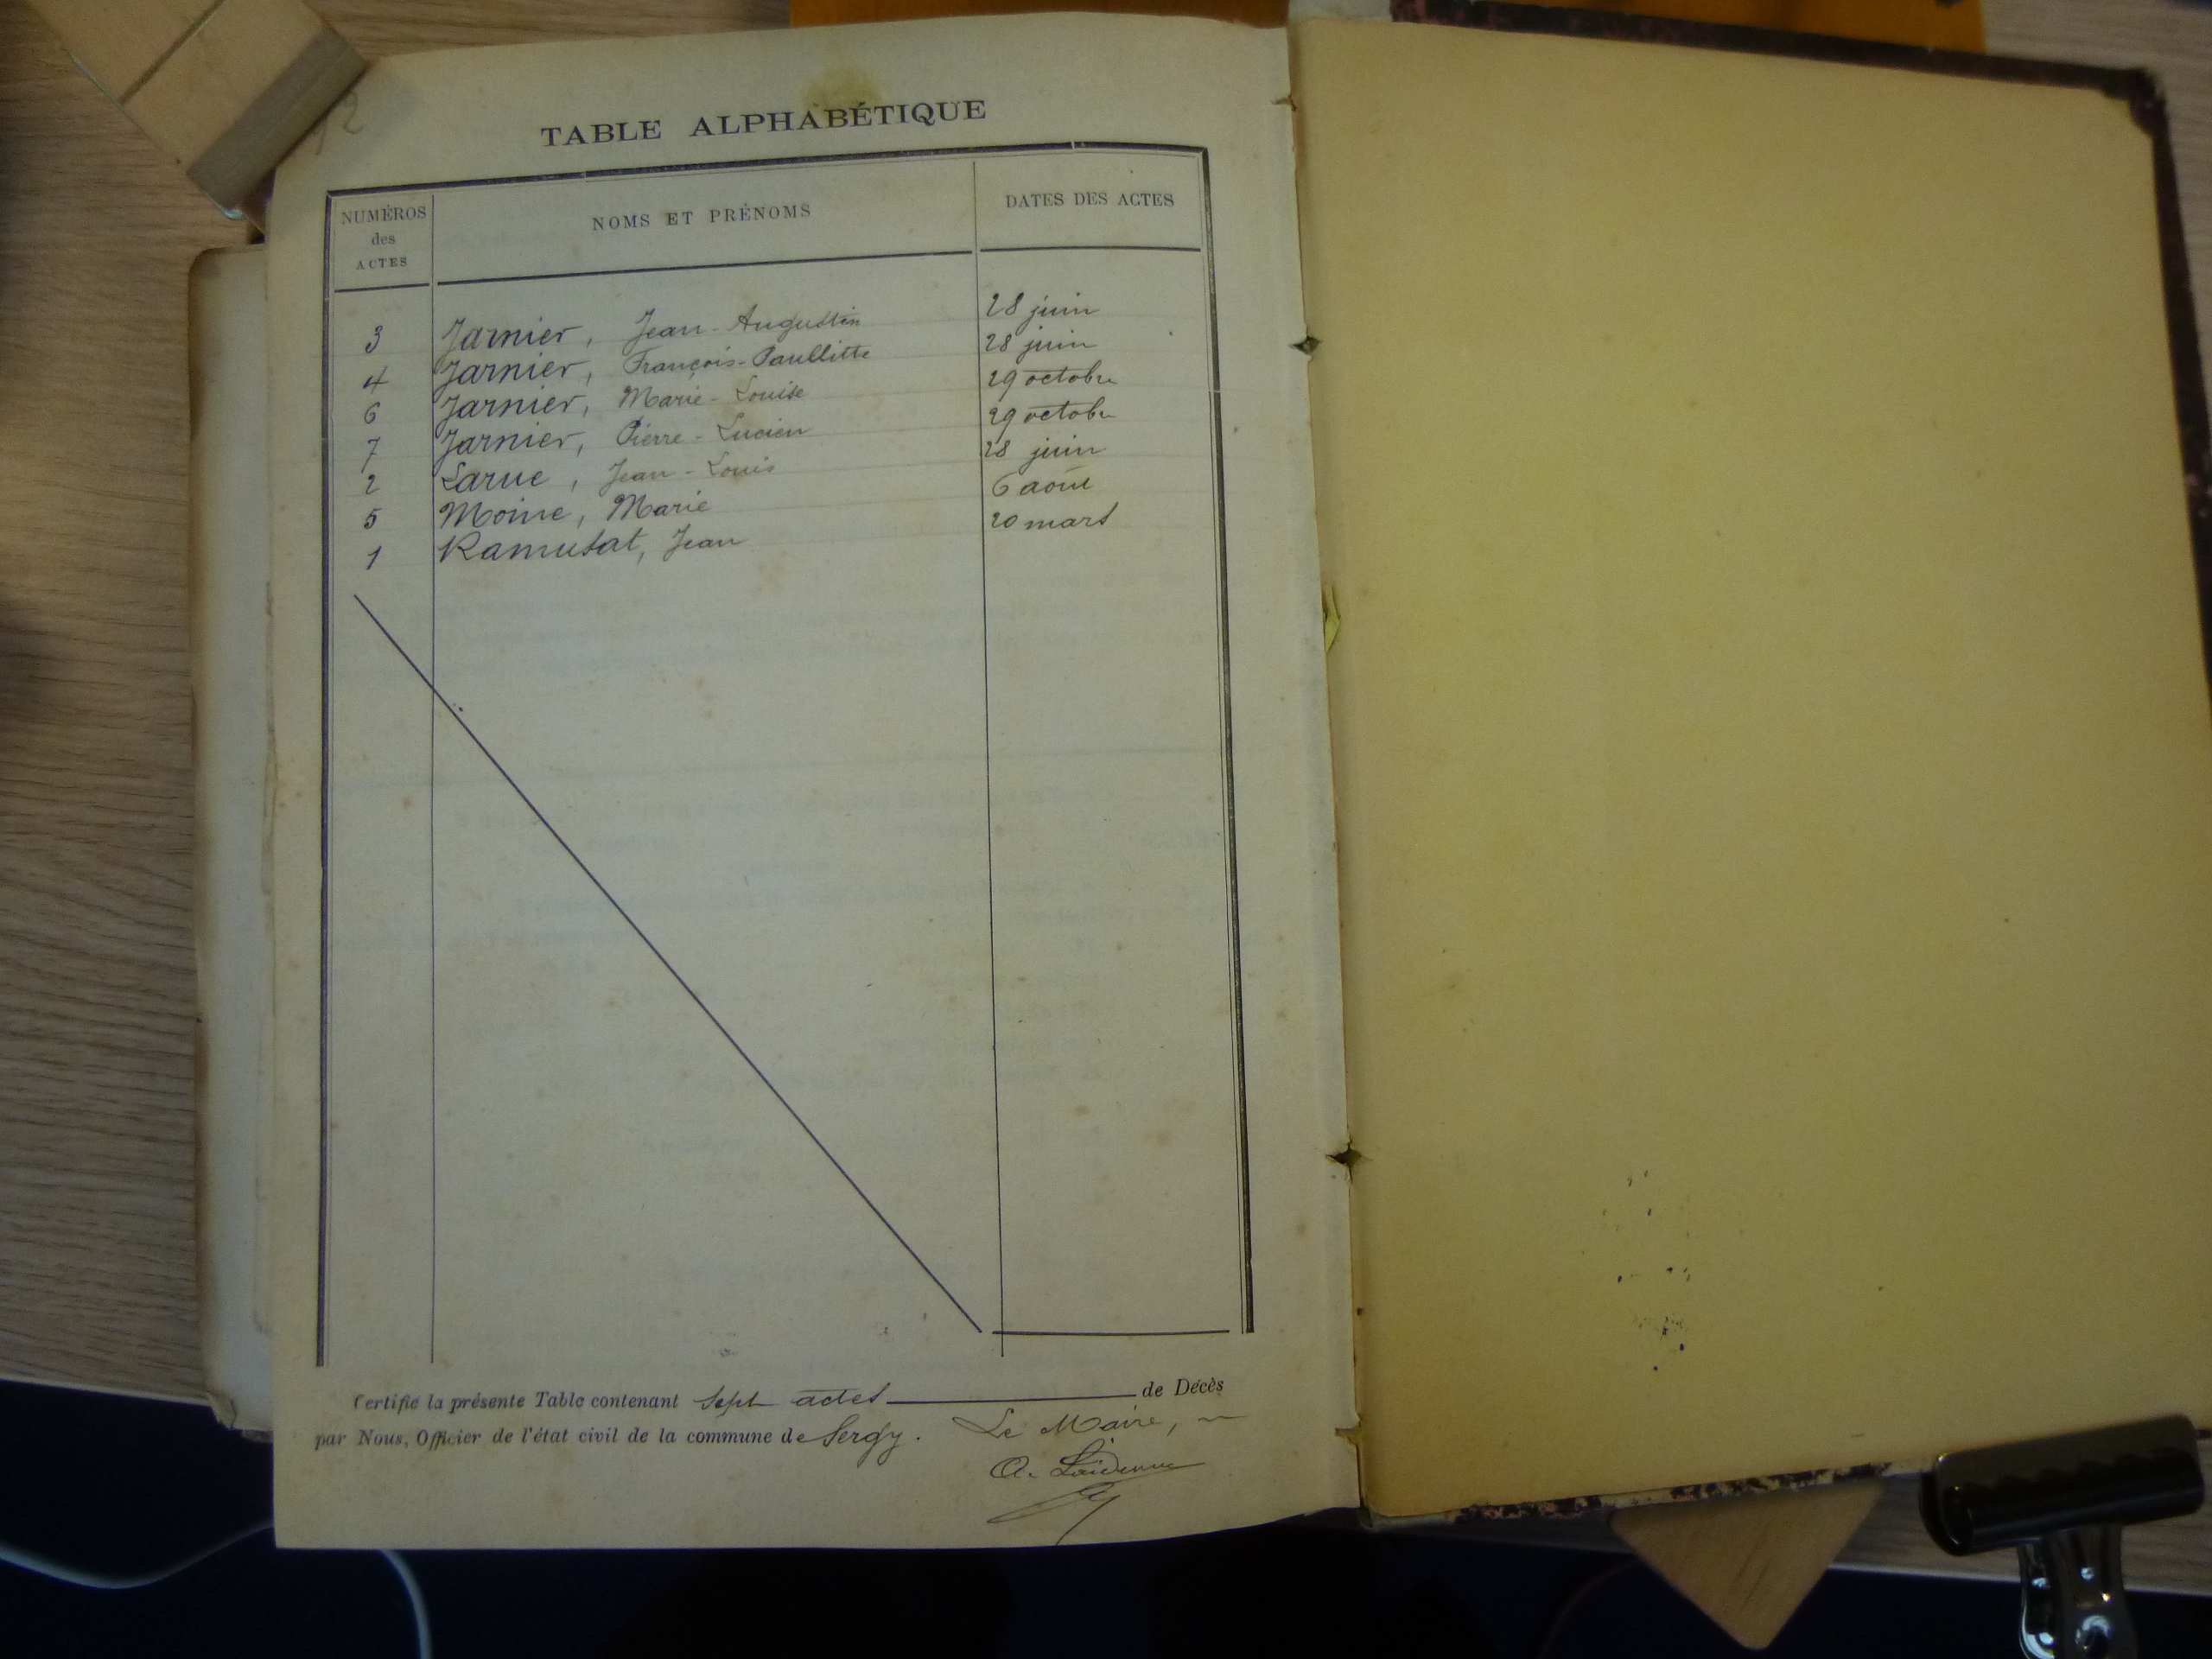 TABLE ALPHABÉTIQUE
NUMÉROS des ACTES NOMS ET PRÉNOMS DATES DES ACTES
3 Jarnier, Jean-Augustin 28 juin
4 Jarnier, François-Paullitte 28 juin
6 Jarnier, Marie-Louise 29 octobre
7 Jarnier, Pierre-Lucien 29 octobre
2 Larue, Jean-Louis 28 juin
5 Moine, Marie 6 août
1 Ramusat, Jean 20 mars
Certifié la présente Table contenant sept actes de Décès
par Nous, Officier de l'état civil de la commune de Sergy. Le Maire,